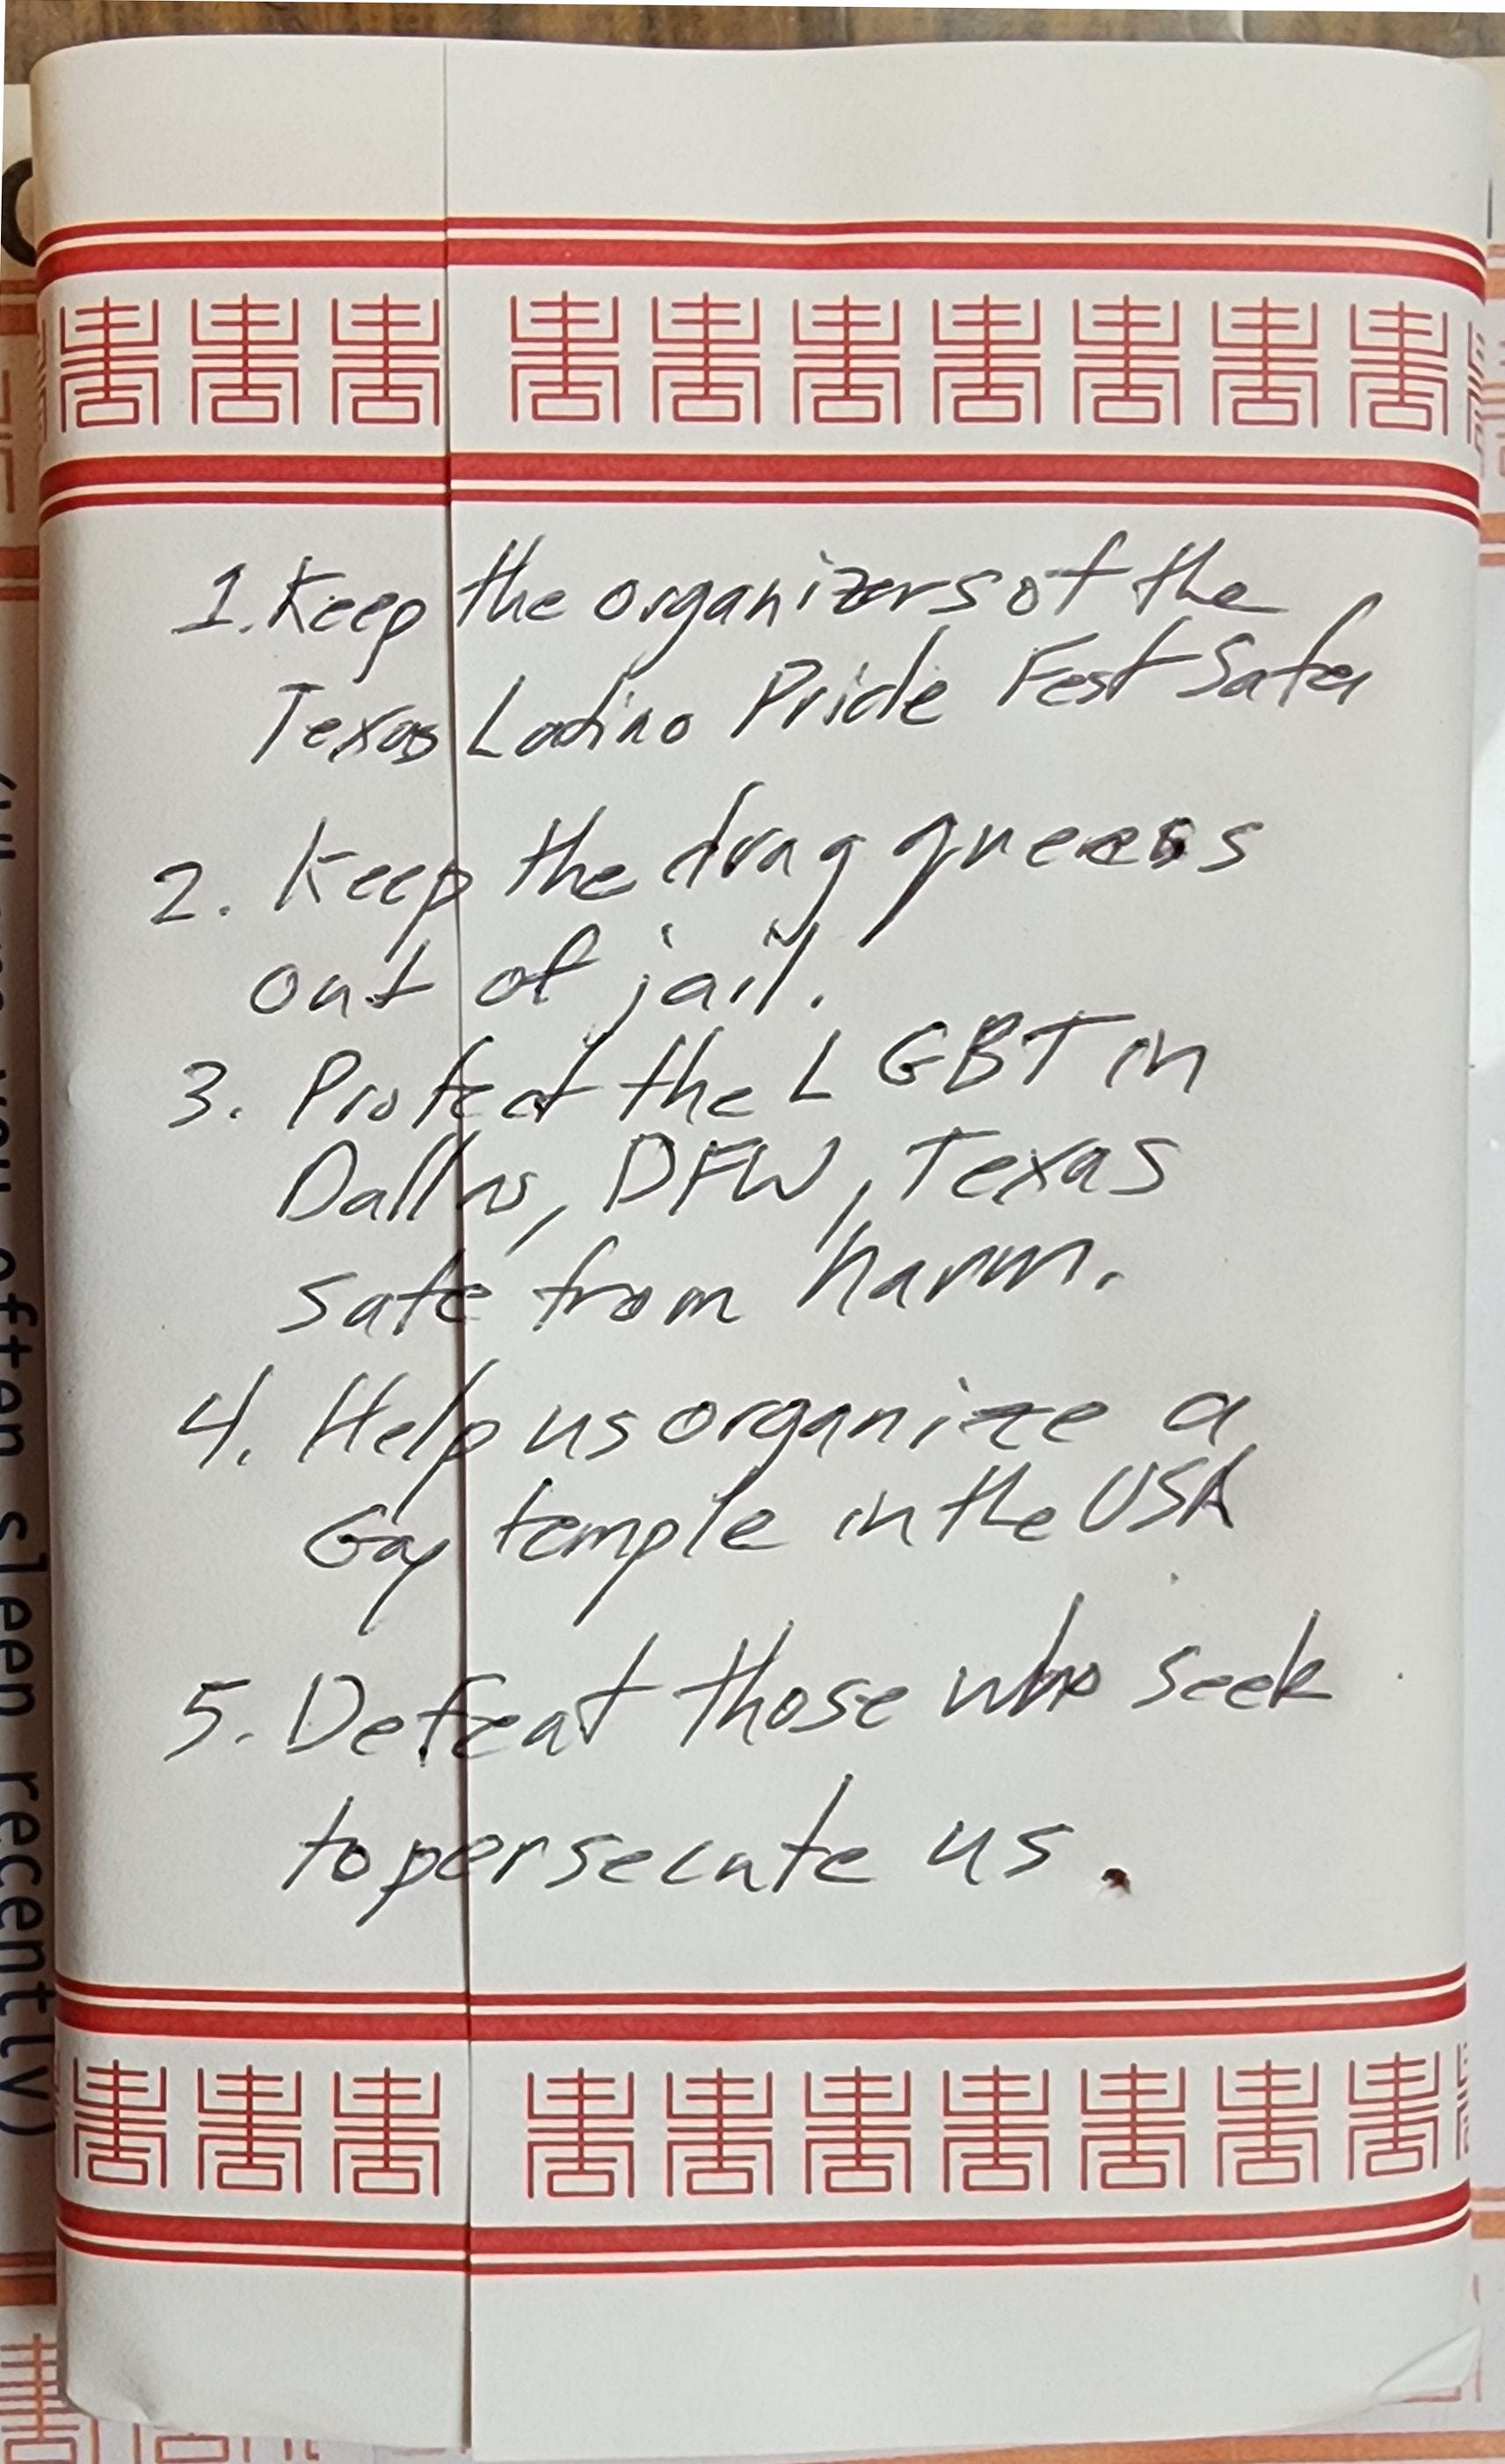 1. Keep the organizers of the
Texas Latino Pride Fest Safe,
2. Keep the drag queens
out of jail.
3. Protect the LGBT in
Dallas, DFW, Texas
safe from harm.
4. Help us organize a
Gay temple in the USA
5. Defeat those who seek
to persecute us.
often sleep recently)